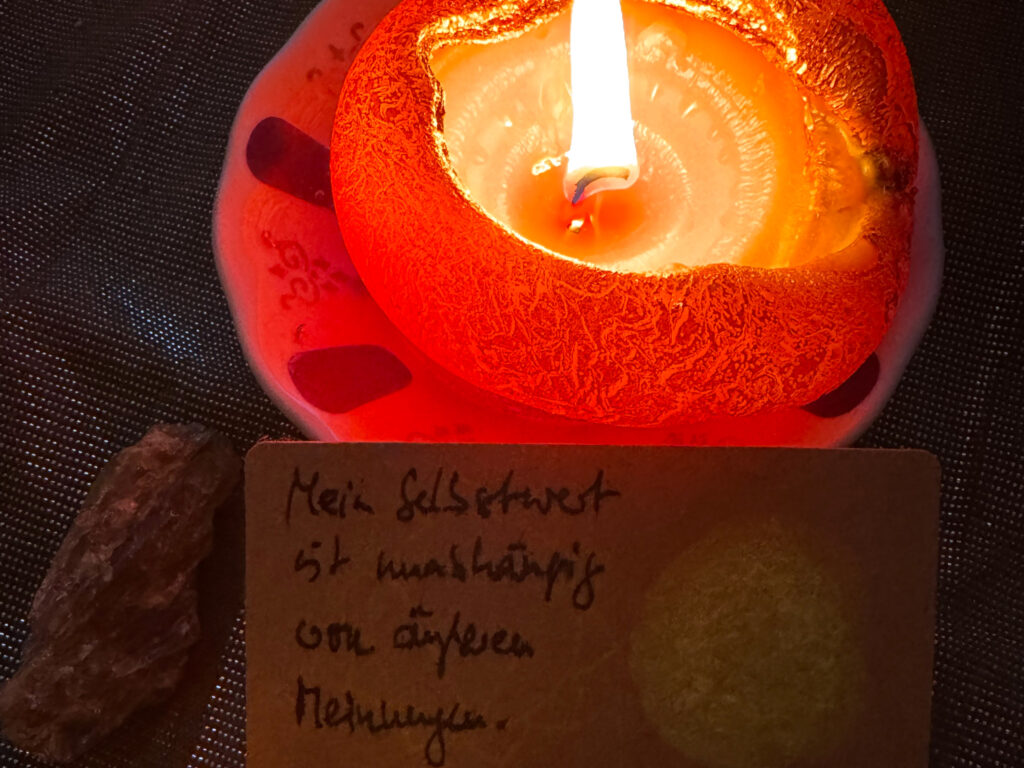 Mein Selbstwert
ist unabhängig
von äußeren
Meinungen.